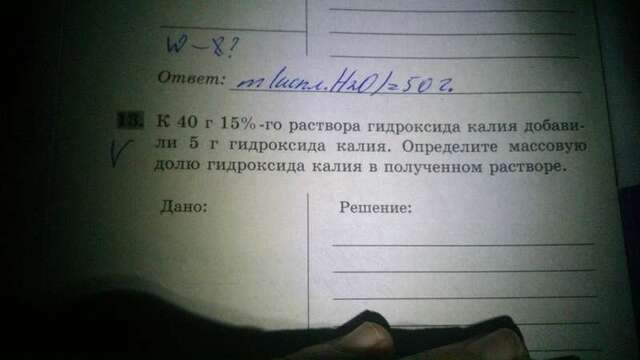 W – 8?
Ответ: m(испл. H₂O)=50 г.
13. К 40 г 15%-го раствора гидроксида калия добави-
ли 5 г гидроксида калия. Определите массовую
долю гидроксида калия в полученном растворе.
Дано: Решение: